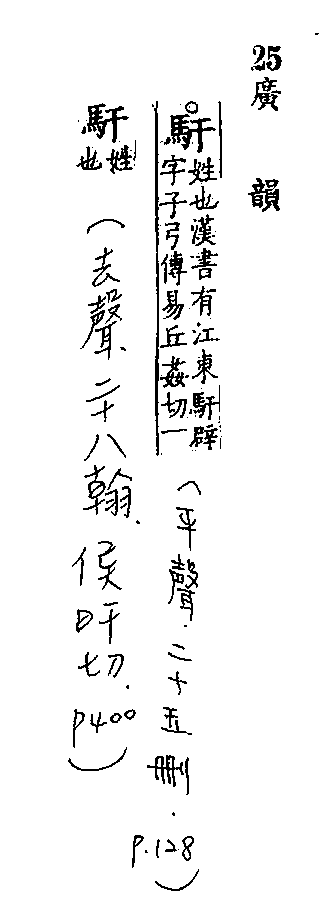 25廣韻
馯姓也漢書有江東馯臂
字子弓傳易丘姦切一
(平聲.二十五刪.p.128)
馯姓也
(去聲、二十八翰、侯旰切.p400)